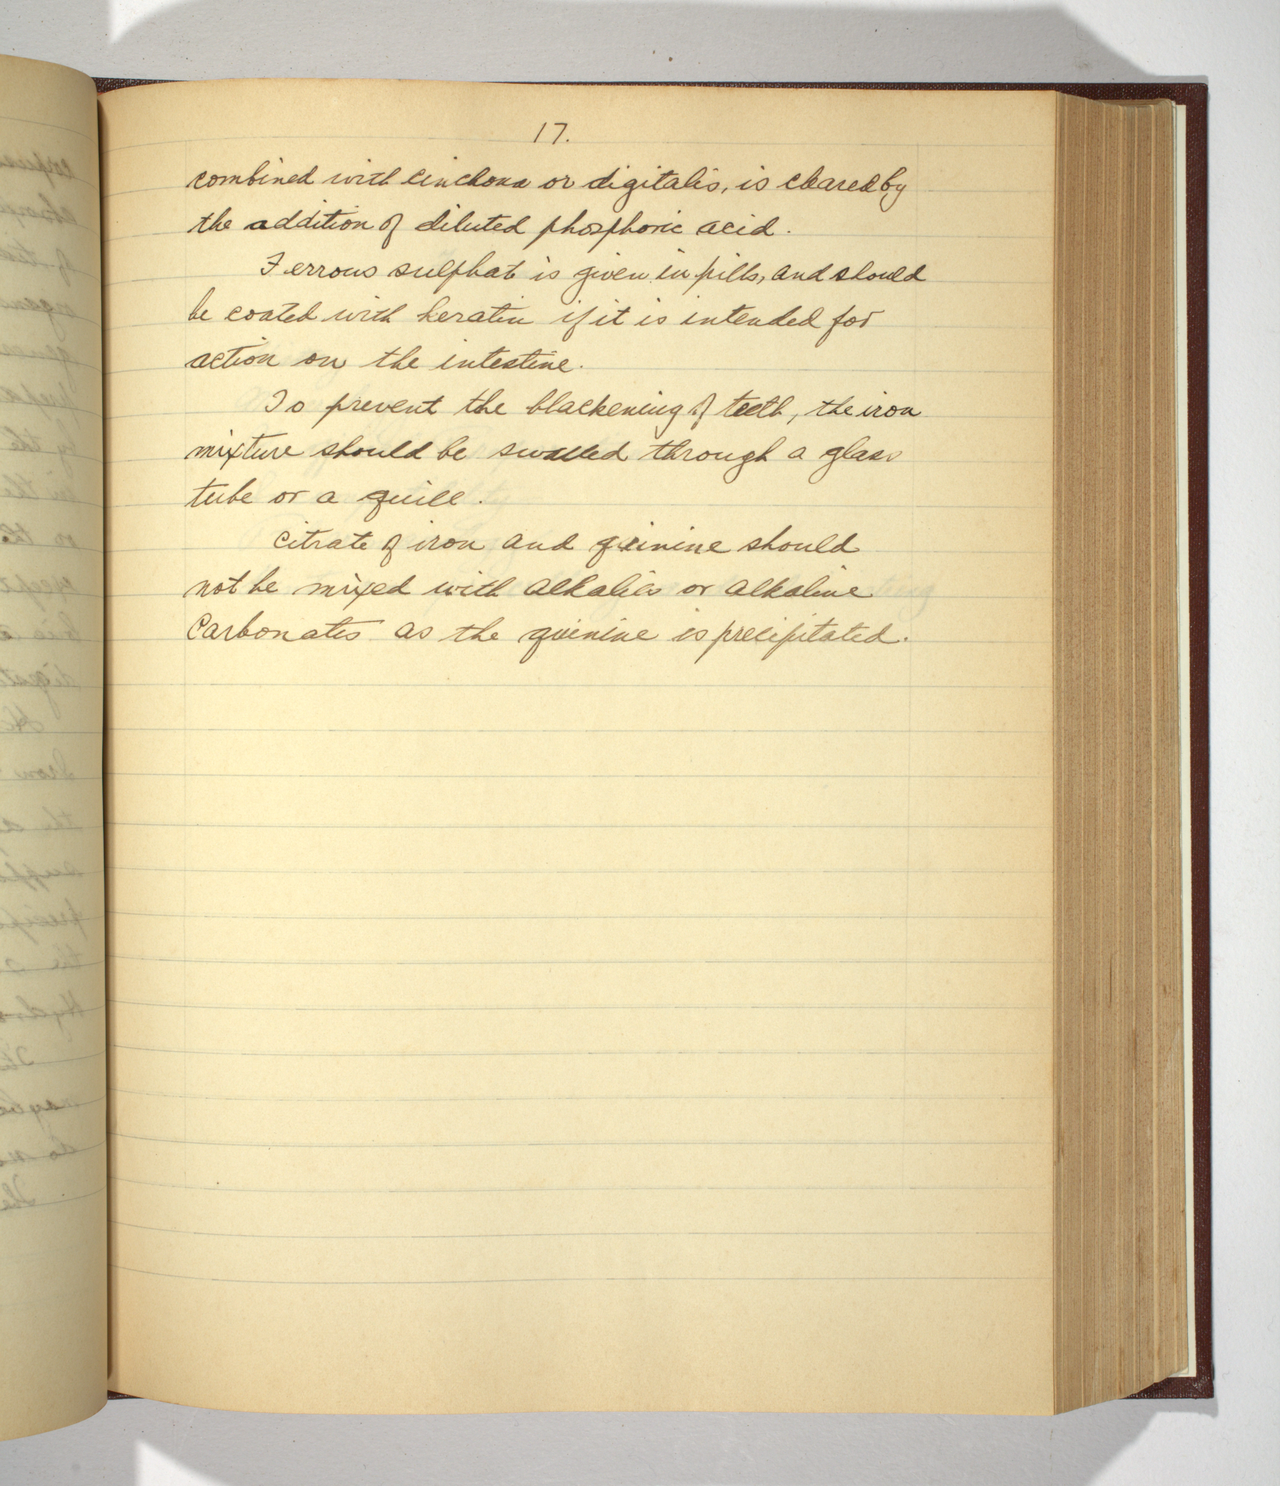 17.
combined with cinchona or digitalis, is cleared by
the addition of diluted phosphoric acid.
Ferrous sulphat is given in pills, and should
be coated with keratin if it is intended for
action on the intestine.
To prevent the blackening of teeth, the iron
mixture should be swalled through a glass
tube or a quill.
Citrate of iron and quinine should
not be mixed with alkalies or alkaline
Carbonates as the quinine is precipitated.